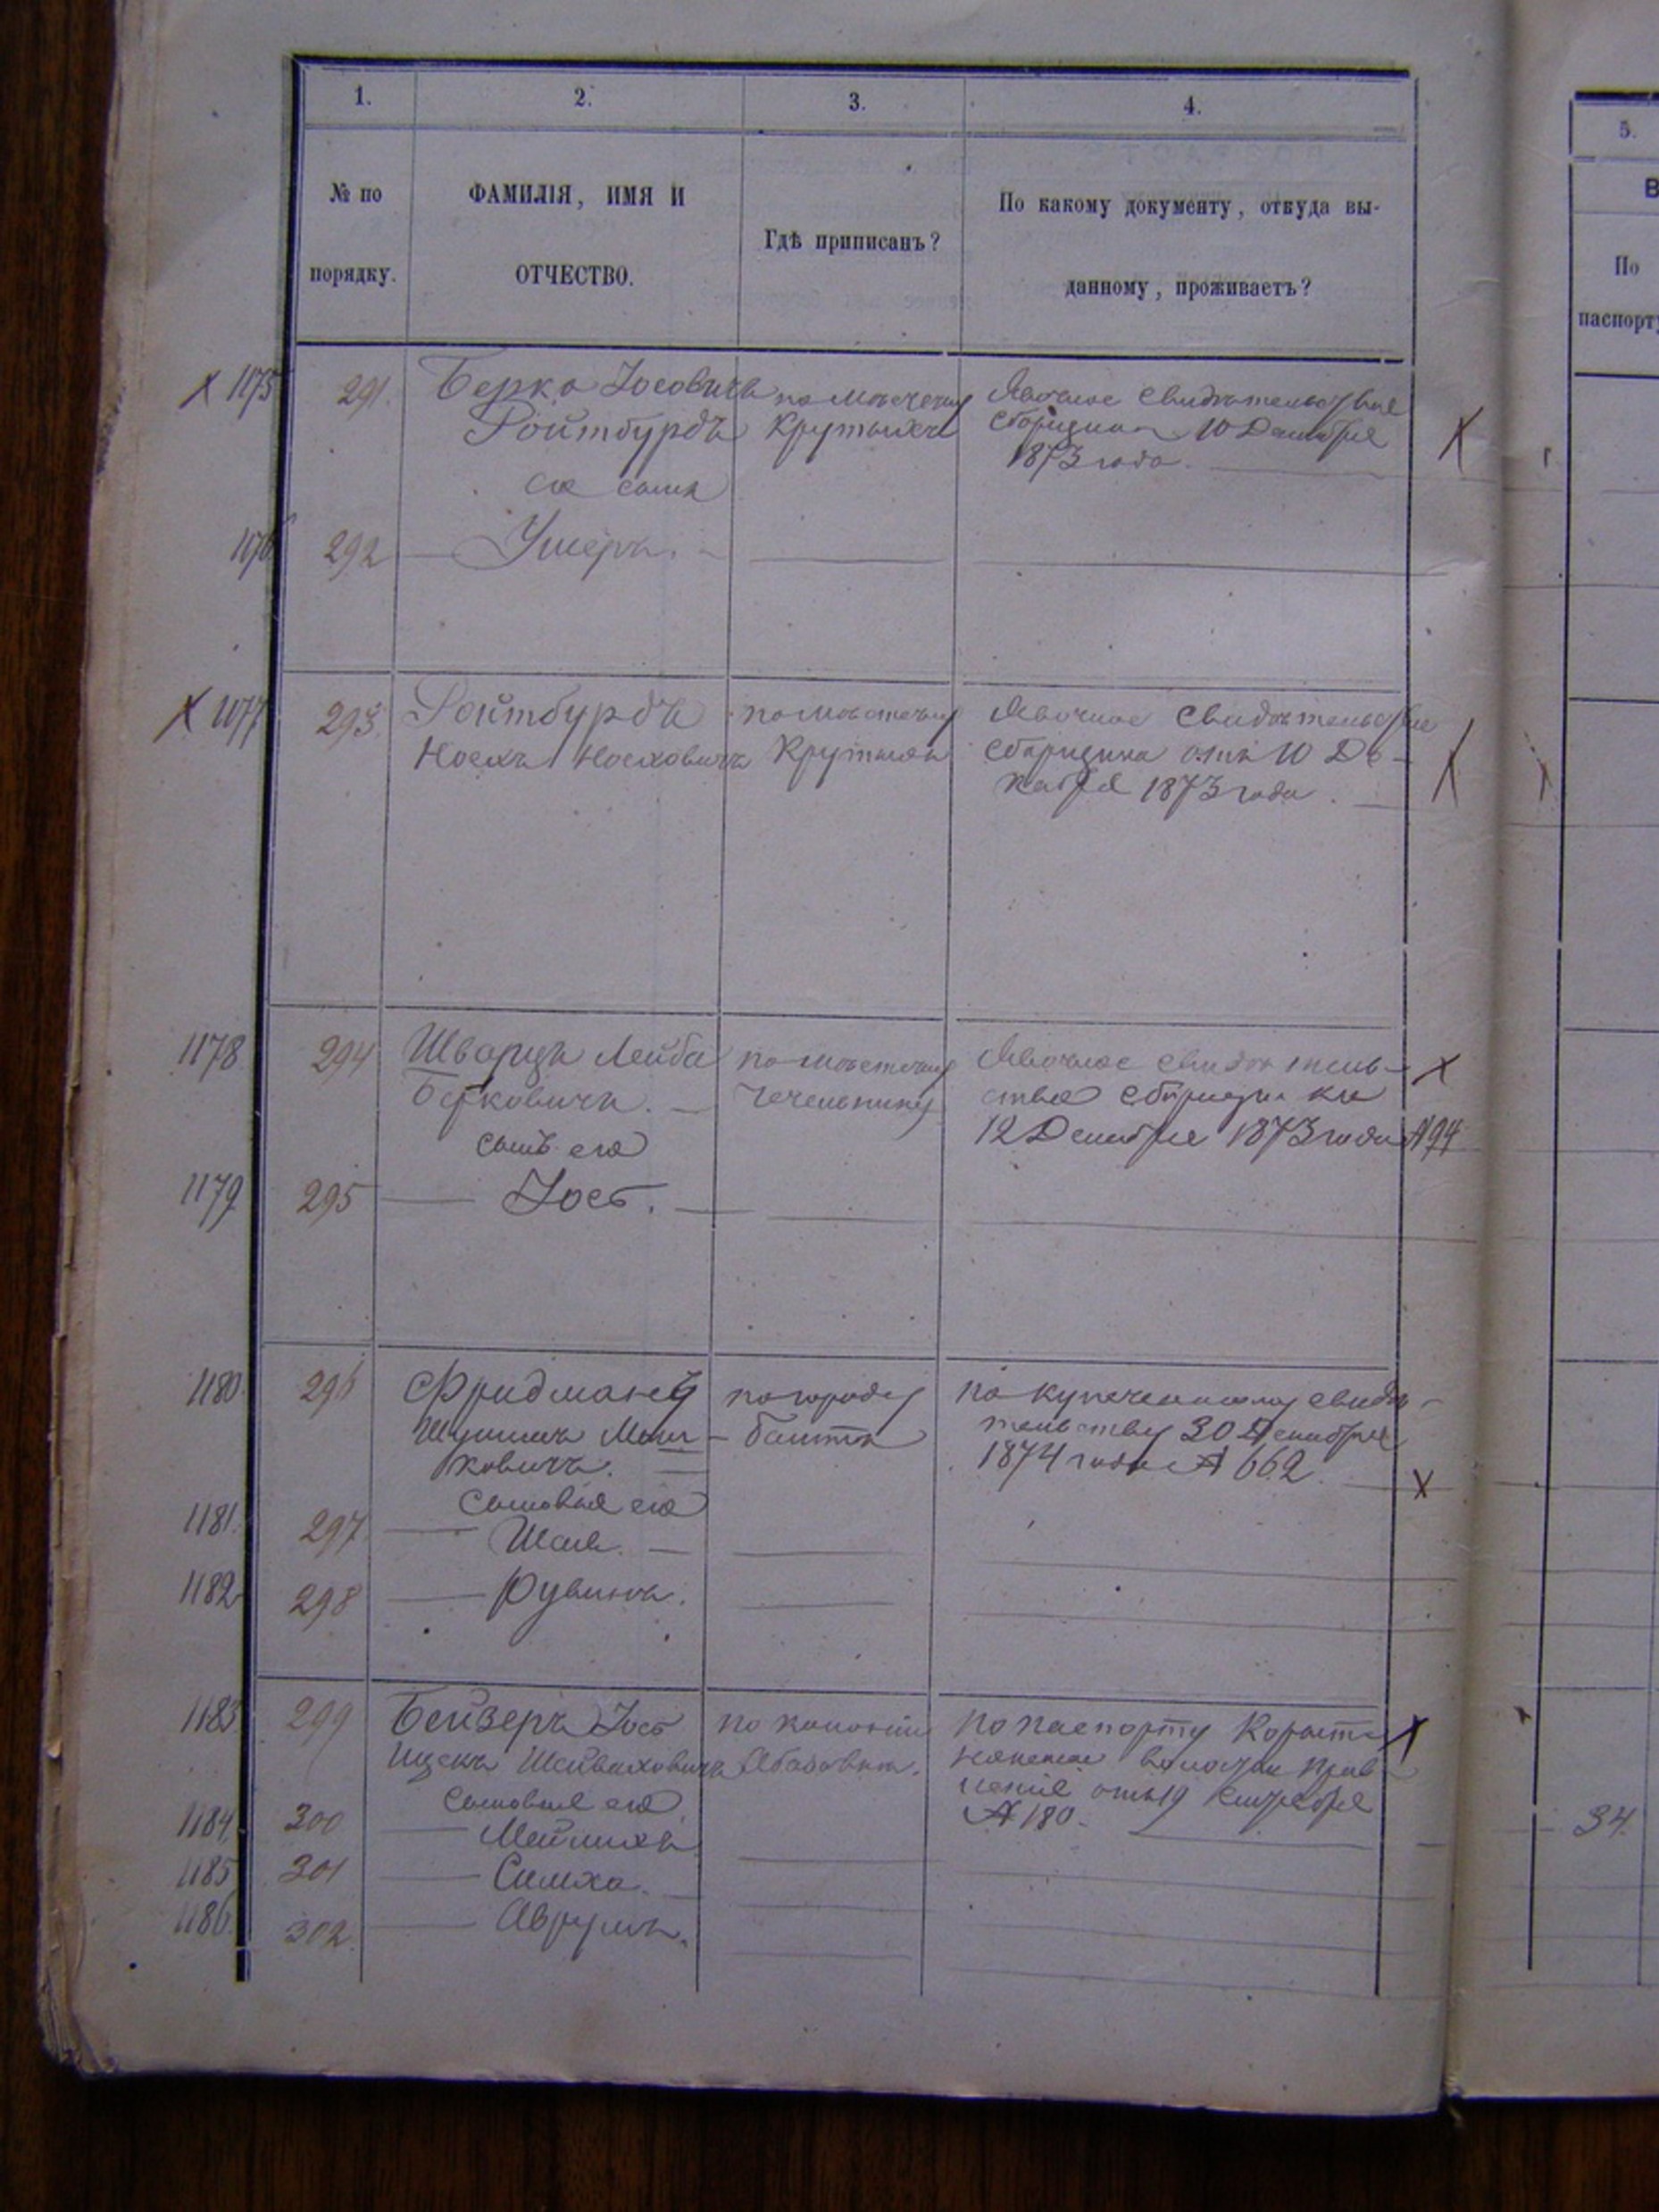 1. 2. 3. 4.
№ по порядку.
ФАМИЛІЯ, ИМЯ И
ОТЧЕСТВО.
Гдѣ приписанъ?
По какому документу, откуда вы-
данному, проживаетъ?
5.
В
По
паспорту
1175 291. Берко Іосовичъ
Ройтбурдъ
его сынъ
по мѣстечку
Крутыхъ
Явочное свидѣтельство
сборщика 10 Декабря
1873 года.
1176 292 Ушеръ.
1177 293. Ройтбурдъ
Носехъ Носеховичъ
по мѣстечку
Крутыхъ
Явочное свидѣтельство
сборщика отъ 10 Де-
кабря 1873 года.
1178 294 Шварцъ Лейба
Берковичъ.
сынъ его
по мѣстечку
Чечельнику
Явочное свидѣтель-
ство сборщика
12 Декабря 1873 года № 94
1179 295 Іось.
1180 296 Фридманъ
Мош-
ковичъ.
сыновья его
по городу
Балтѣ
по купеческому свидѣ-
тельству 30 Декабря
1874 года № 662.
1181. 297 Шая.
1182 298 Рувинъ.
1183 299 Бейзеръ Іось
Ицекъ
сыновья его
по колоніи
Абазовкѣ.
по паспорту
волостн. прав-
ленія отъ 19
№ 180.
1184 300 Мейлихъ
1185 301 Симха.
1186. 302. Аврумъ.
34.